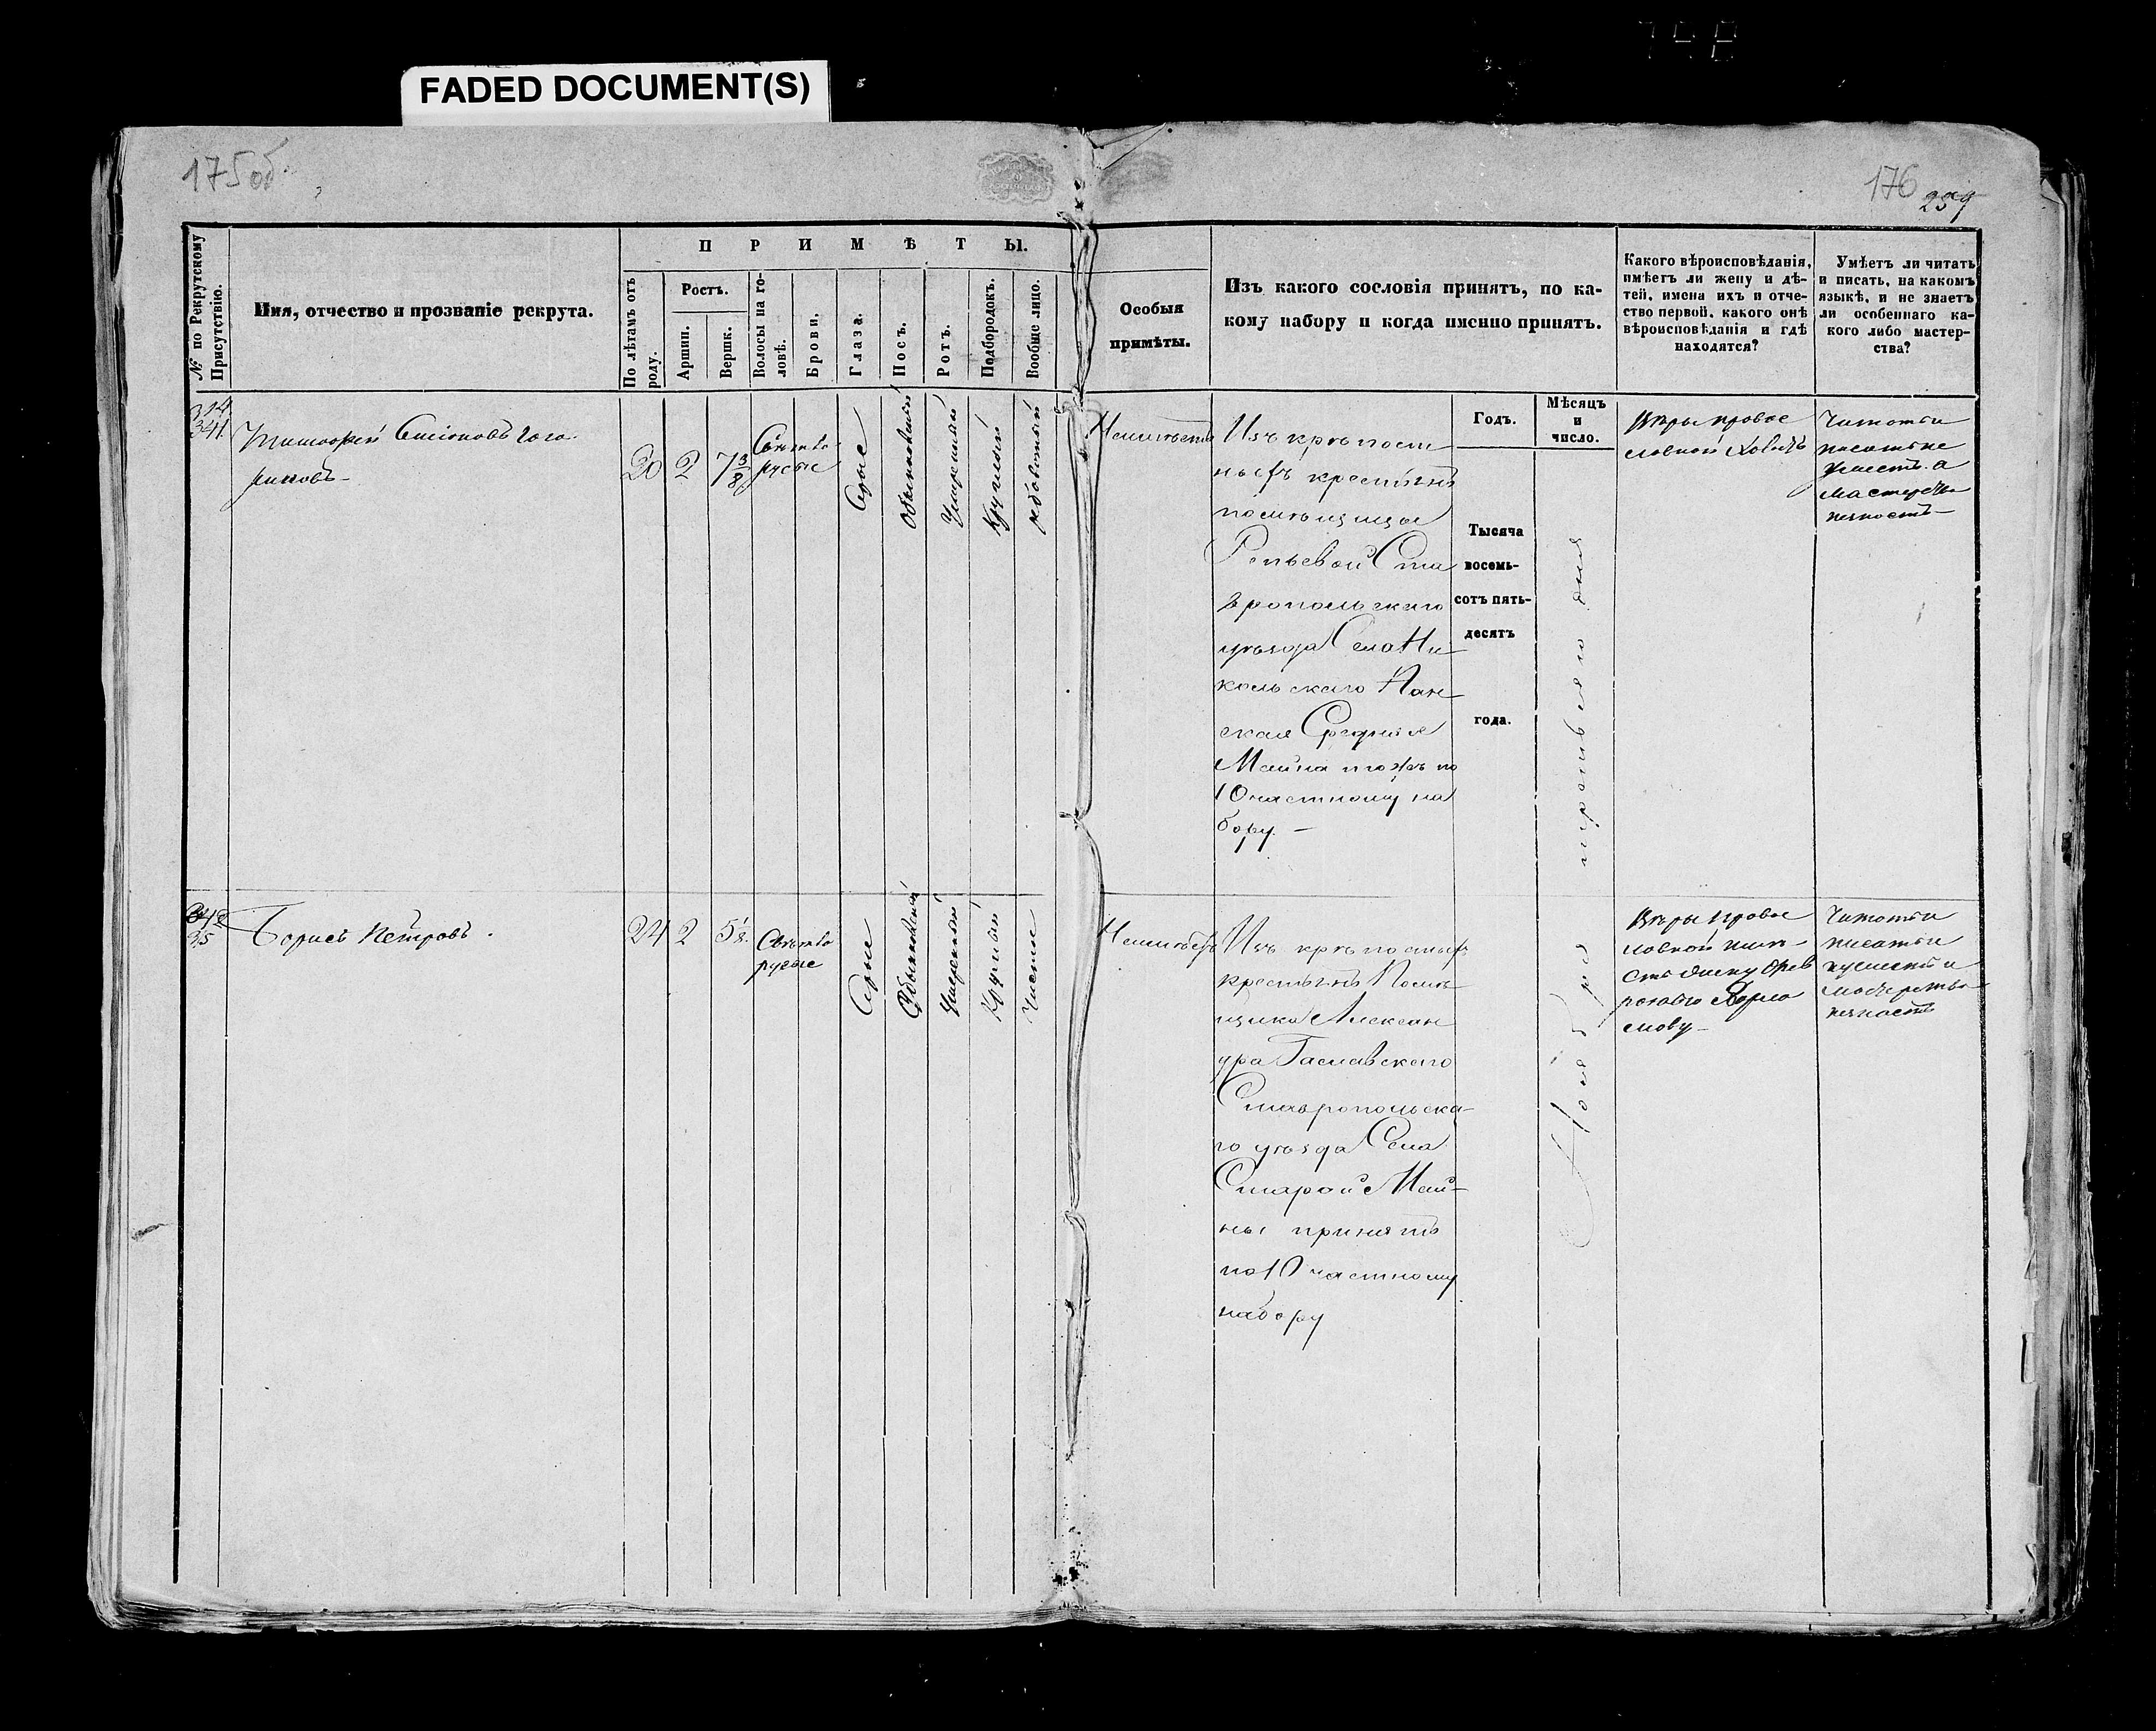 FADED DOCUMENT(S)
175об.
176
№ по Рекрутскому Присутствію.
Имя, отчество и прозваніе рекрута.
ПРИМѢТЫ.
По лѣтамъ отъ роду.
Ростъ.
Аршин.
Вершк.
Волосы на головѣ.
Брови.
Глаза.
Носъ.
Ротъ.
Подбородокъ.
Вообще лицо.
Особыя
примѣты.
Изъ какого сословія принятъ, по ка-
кому набору и когда именно принятъ.
Какого вѣроисповѣданія,
имѣетъ ли жену и дѣ-
тей, имена ихъ и отче-
ство первой, какого онѣ
вѣроисповѣданія и гдѣ
находятся?
Умѣетъ ли читать
и писать, на какомъ
языкѣ, и не знаетъ
ли особеннаго ка-
кого либо мастер-
ства?
Годъ.
Мѣсяцъ
и
число.
341
Тимофей
20
2
7 3/8
Свѣтло
русые
Серые
Обыкновенный
Умеренный
Круглый
рябоватый
Изъ крѣпост
ныхъ крестьянъ
помѣщицы
Репьевой Ста
вропольскаго
уѣзда Села Ни
кольскаго
Средняя
Майна тожъ по
10 частному на
бору. —
Тысяча
восемь-
сотъ пять-
десятъ
года.
Ноября третьяго дня
Вѣры провос
лавной холостъ
Читать и
писать не
умеетъ а
мастерства
342
Борисъ Петровъ.
24
2
5 1/8
Свѣтло
русые
Серые
Обыкновенный
Умеренный
Круглый
Чистое
Изъ крѣпостныхъ
крестьянъ Помѣ
щика Алексан
дра
Ставропольска-
го уѣзда Села
Старой Май-
ны принятъ
по 10 частному
набору
Вѣры провос
лавной
Читать и
писать